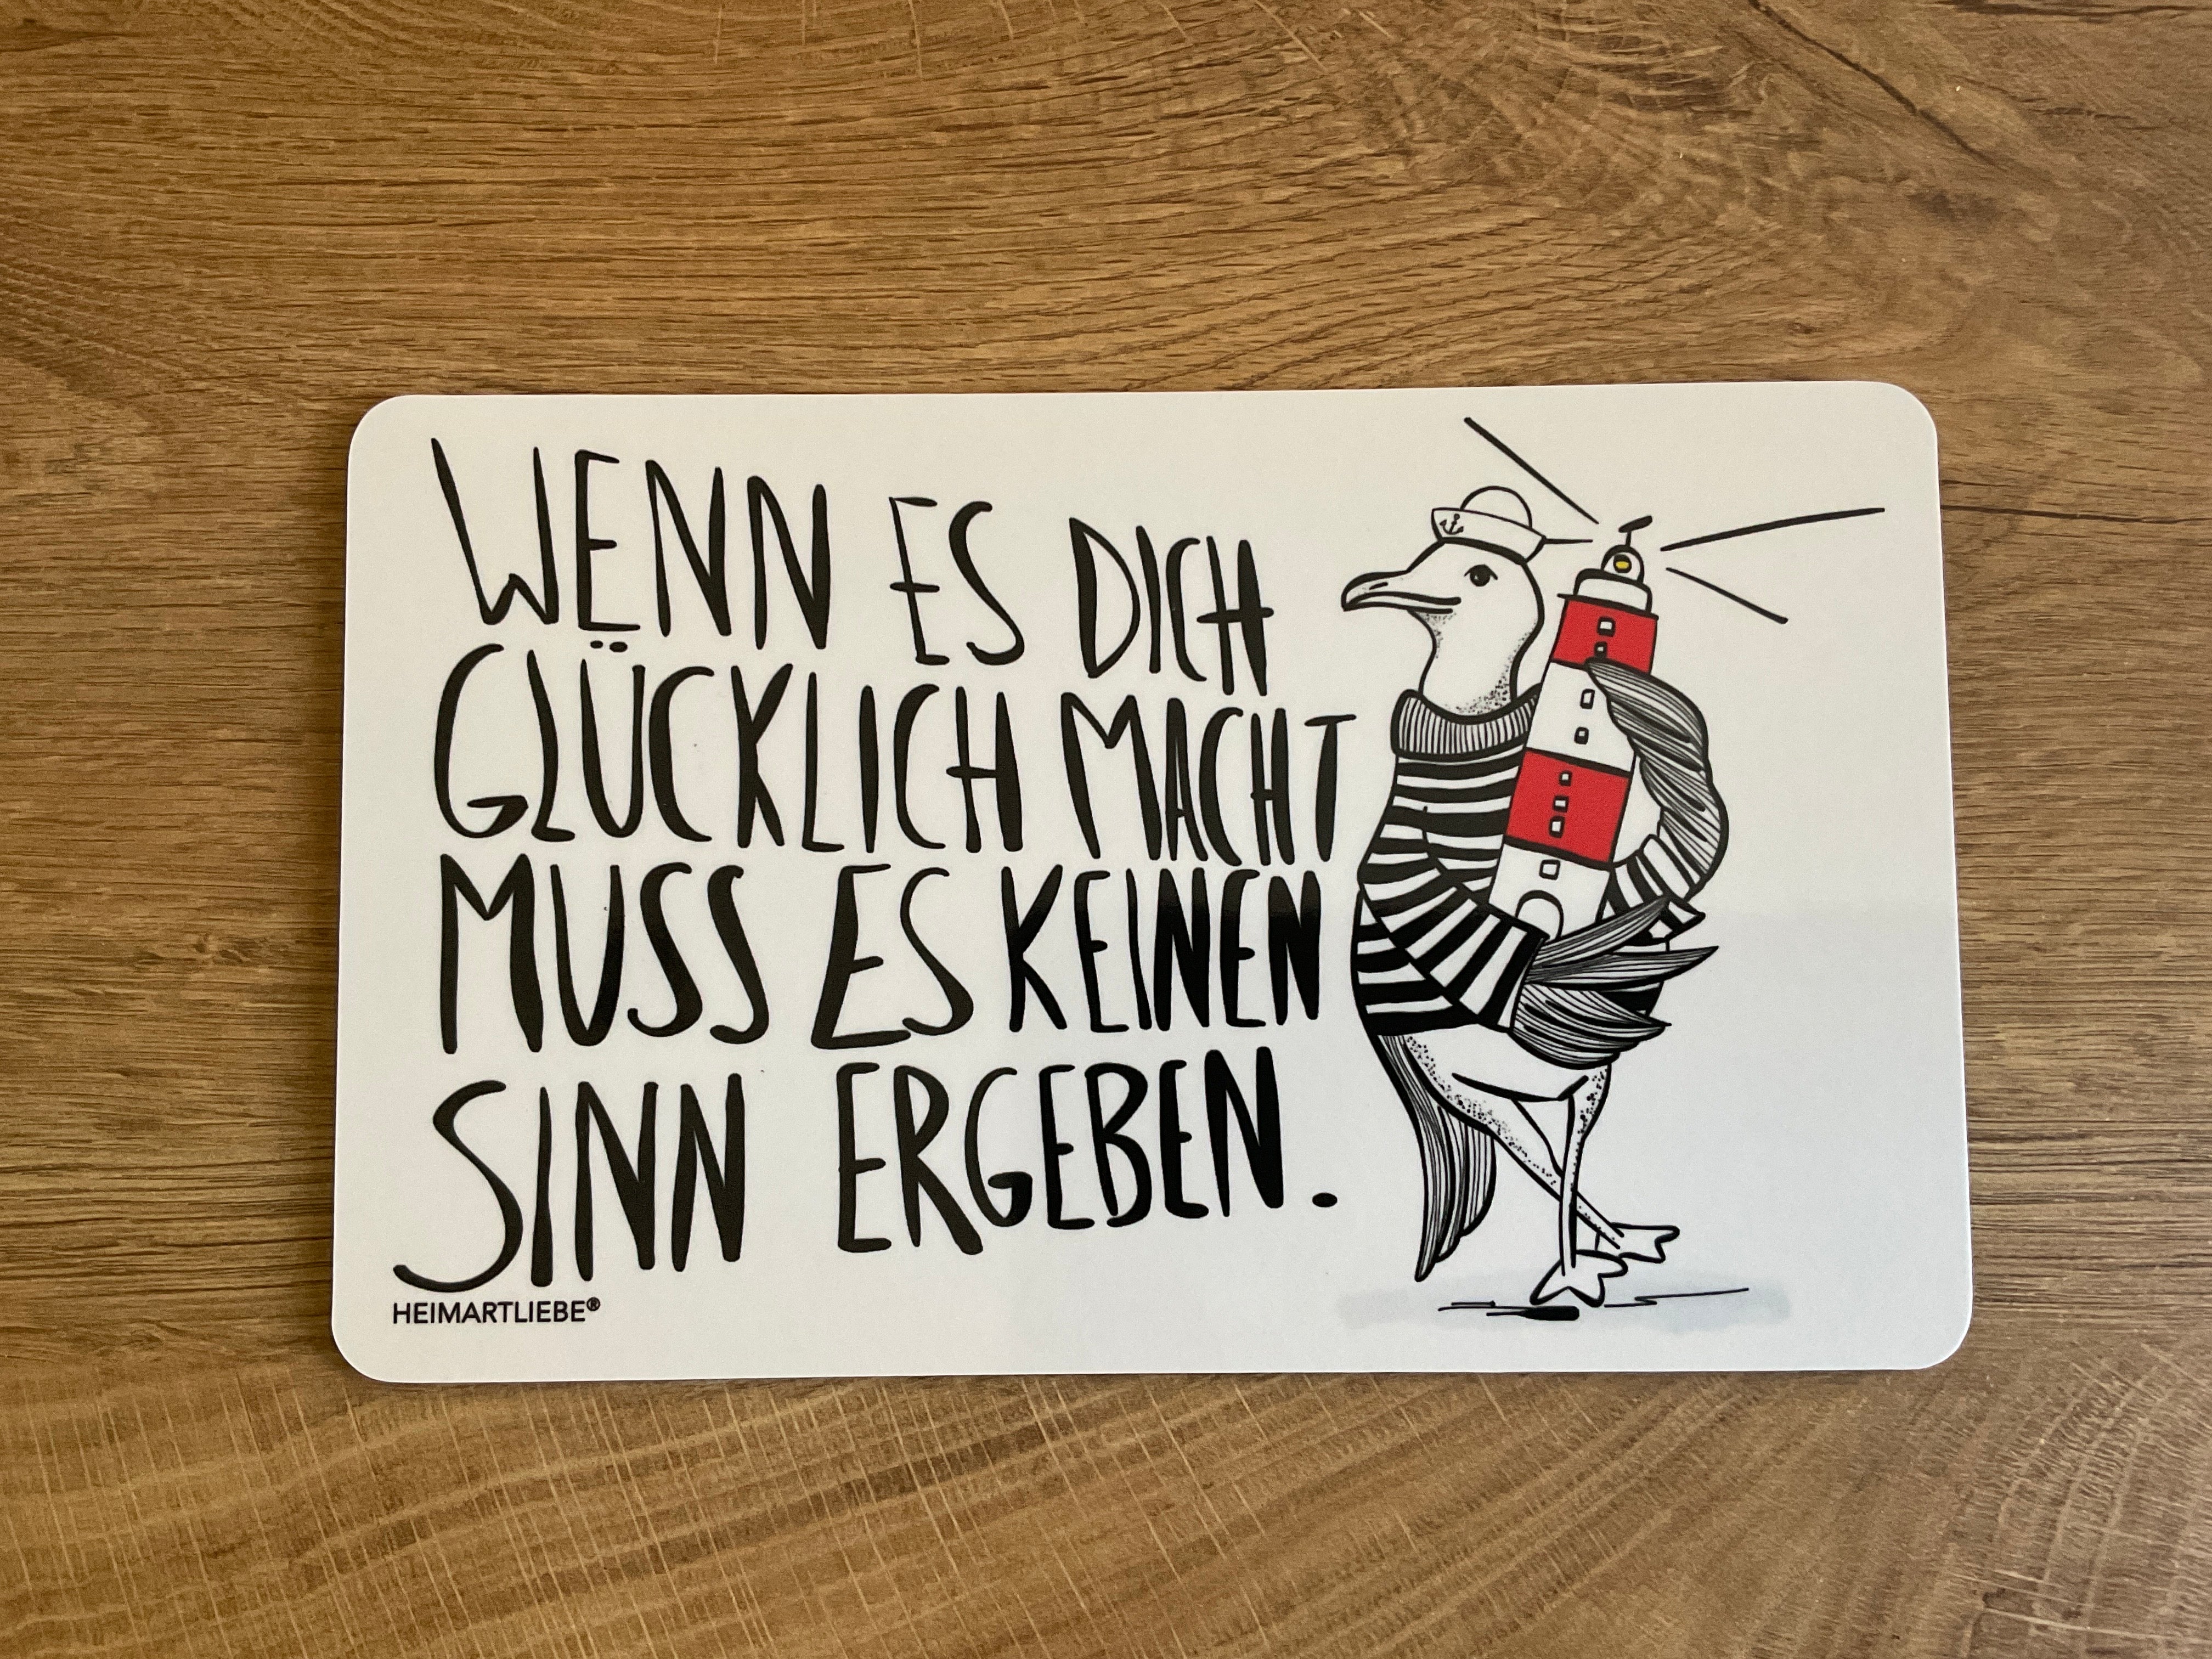 WENN ES DICH
GLÜCKLICH MACHT
MUSS ES KEINEN
SINN ERGEBEN.
HEIMARTLIEBE®